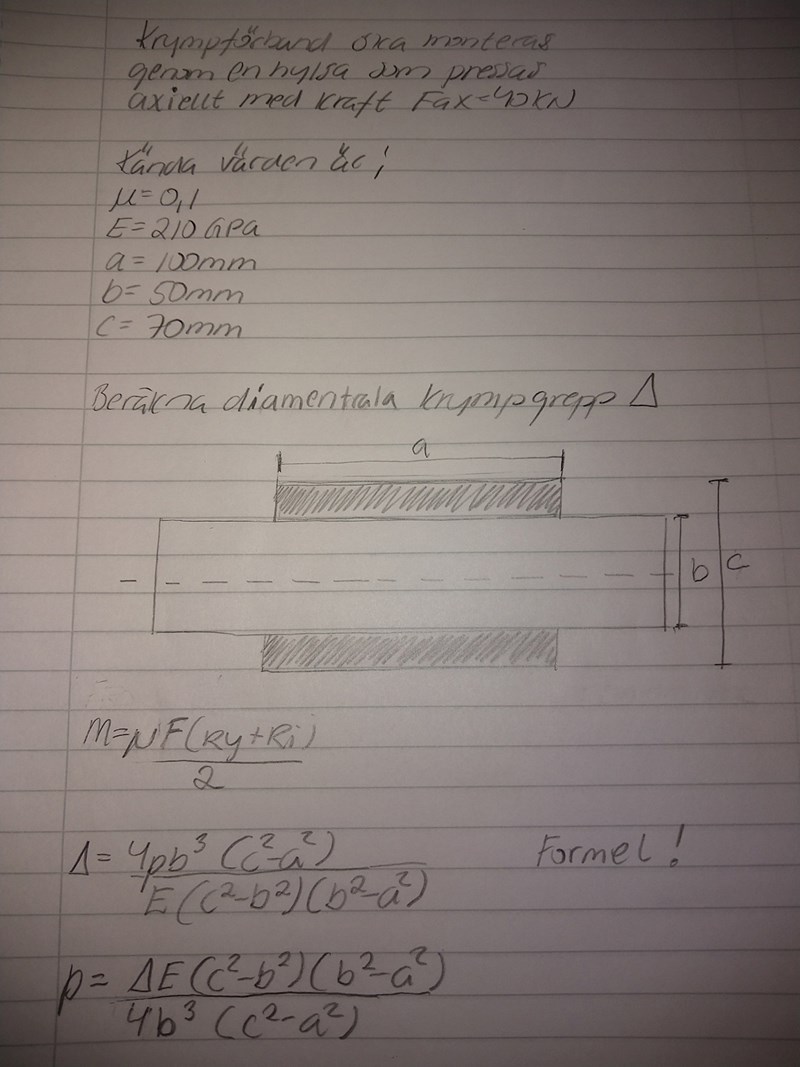 Krympförband ska monteras
genom en hylsa som pressas
axiellt med kraft Fax=40kN
Kända värden är;
μ=0,1
E=210GPa
a=100mm
b=50mm
c=70mm
Beräkna diamentrala krympgrepp Δ
a
b
c
M=μF(Ry+Ri)
2
Δ=4pb³(c²-a²) Formel!
E(c²-b²)(b²-a²)
p=ΔE(c²-b²)(b²-a²)
4b³(c²-a²)